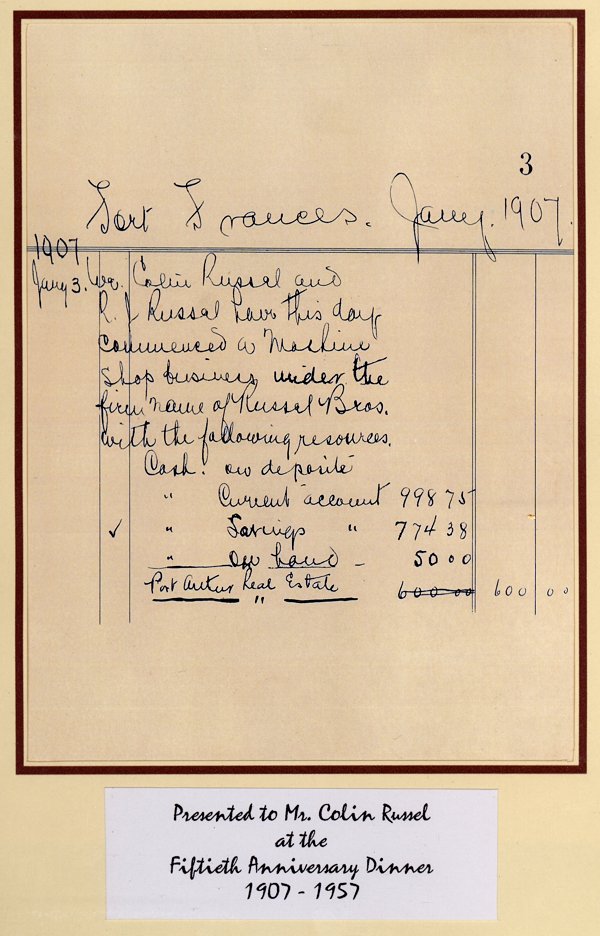 3
Fort Frances. Jany. 1907.
1907
Jany 3. We. Colin Russel and
R. J Russel have this day
commenced a Machine
Shop business, under the
firm name of Russel Bros.
with the following resources.
Cash. on deposite
" Current account 998 75
✓ " Savings " 774 38
" on hand - 50 00
Port Arthur Real Estate 600 00 600 00
"
Presented to Mr. Colin Russel
at the
Fiftieth Anniversary Dinner
1907 - 1957